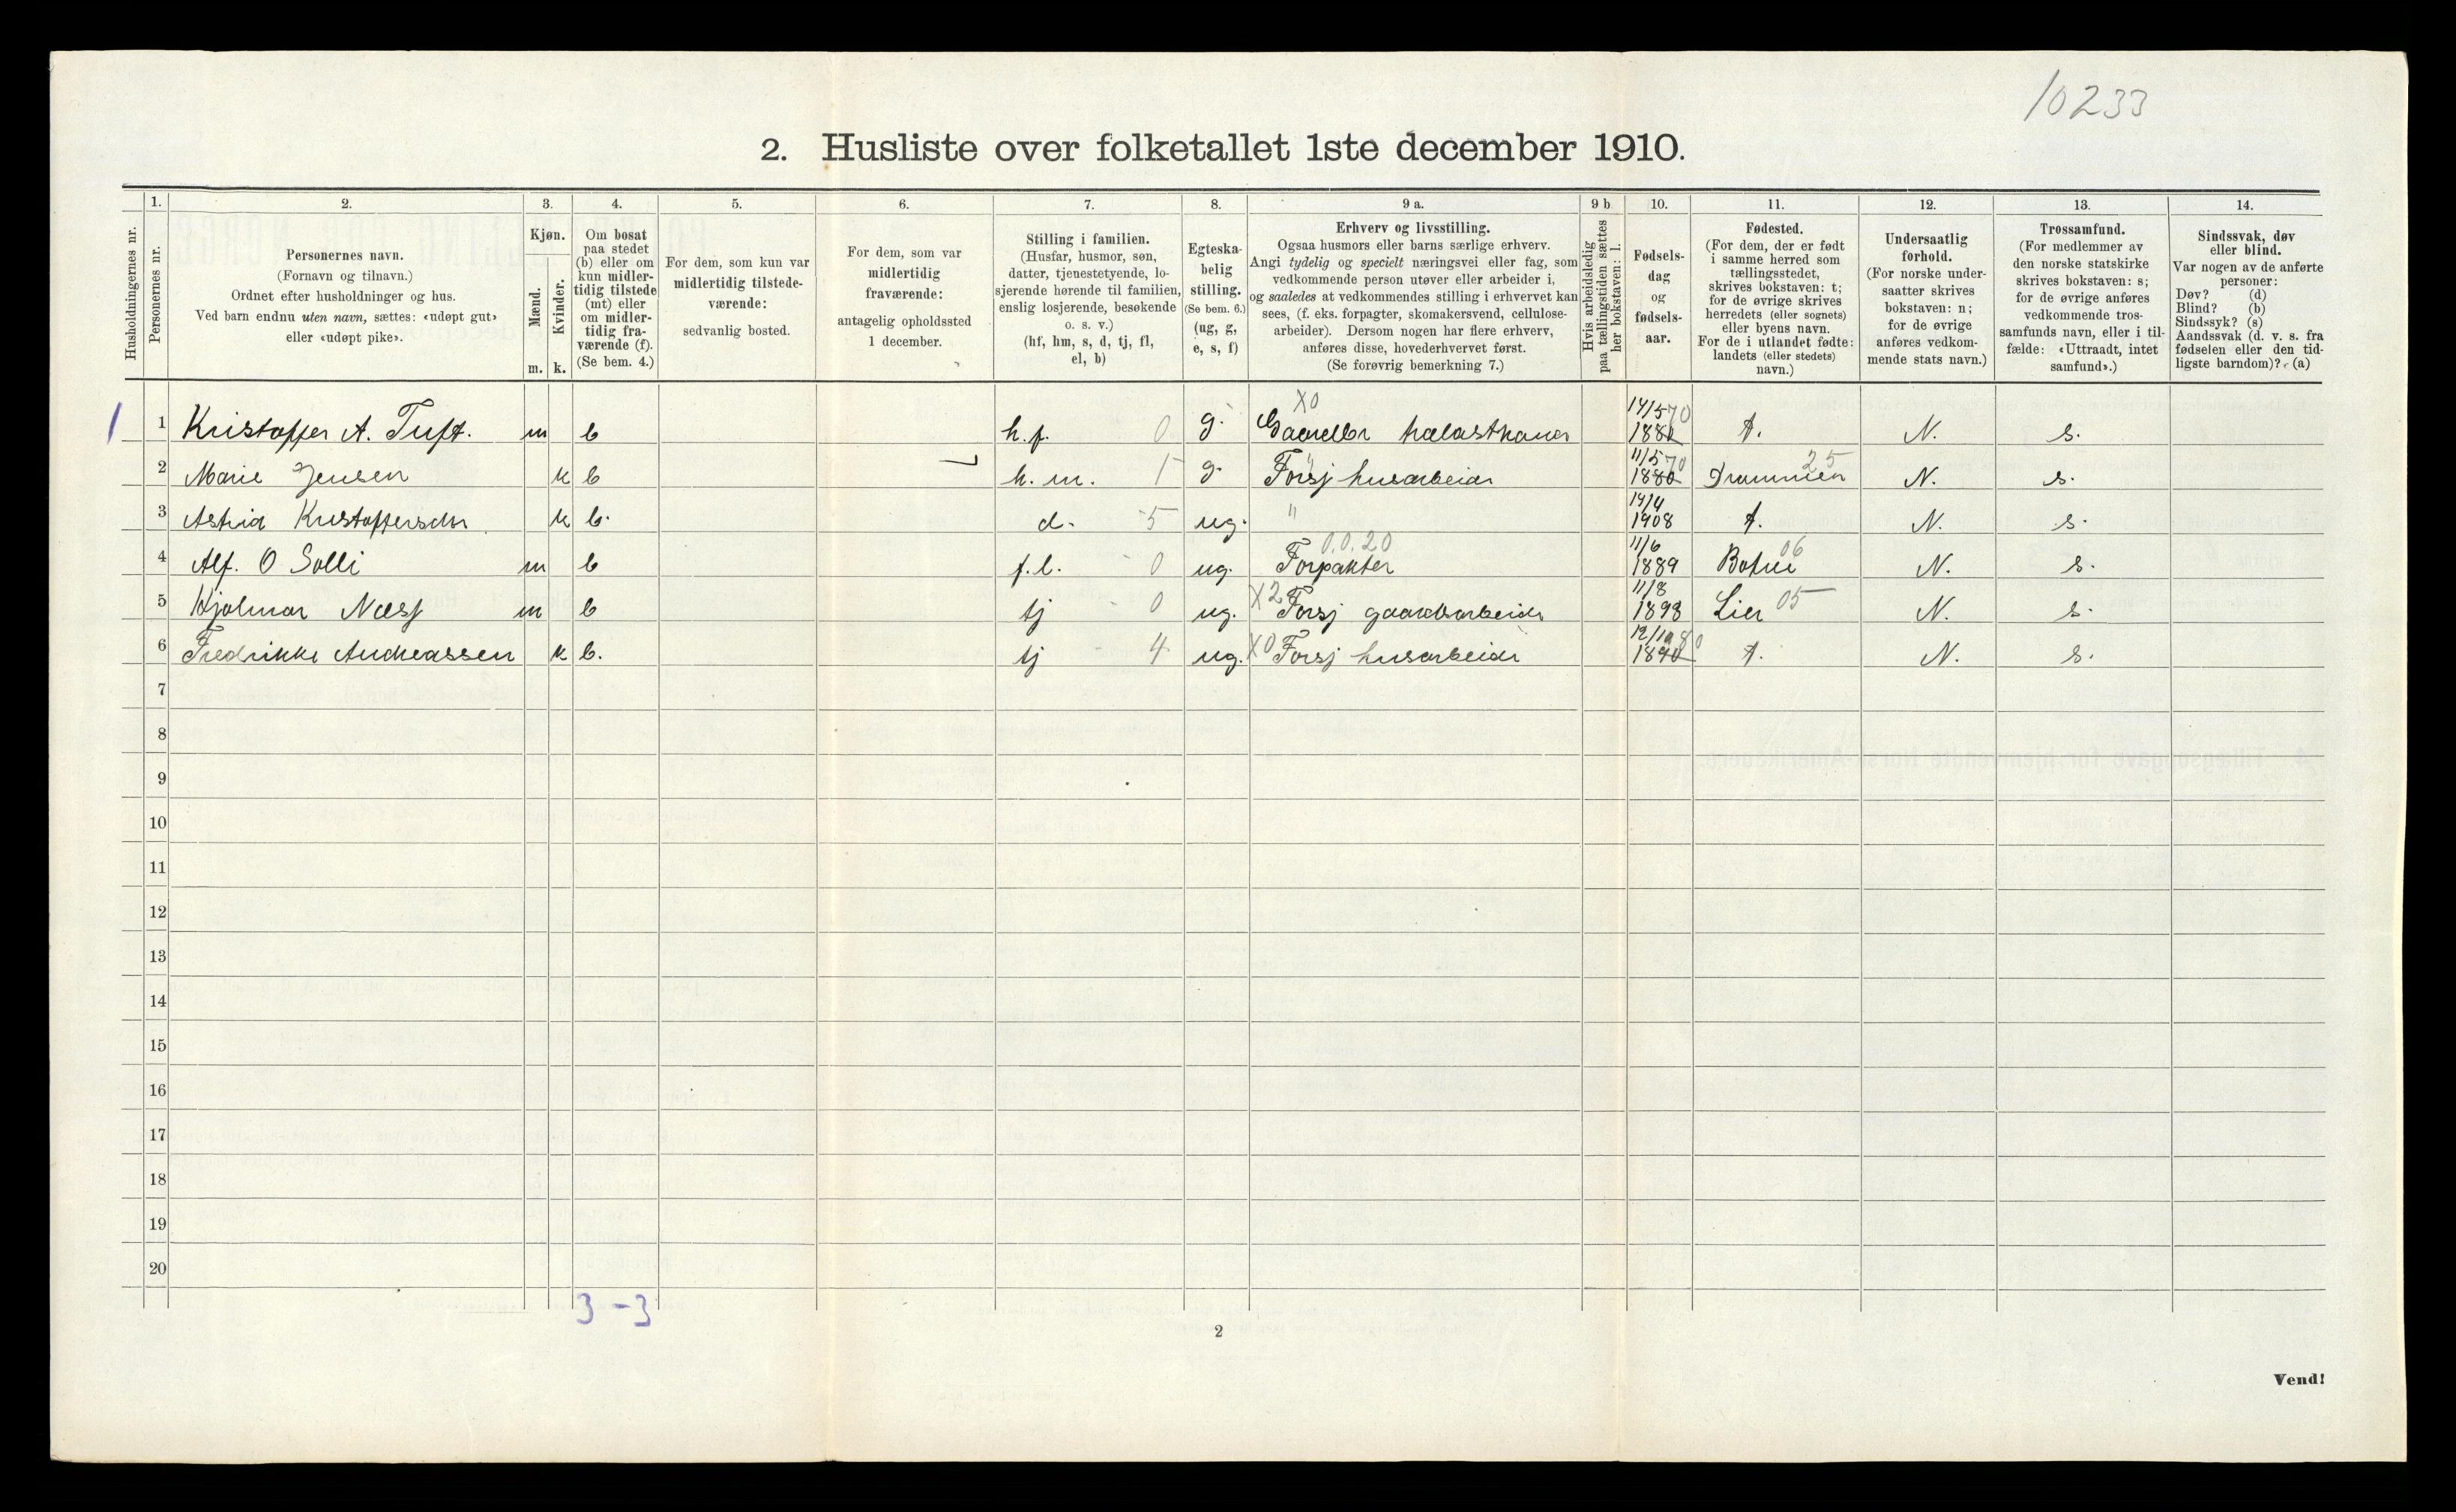 10233
2. Husliste over folketallet 1ste december 1910.
Husholdningernes nr.
1.
Personernes nr.
2.
Personernes navn.
(Fornavn og tilnavn.)
Ordnet efter husholdninger og hus.
Ved barn endnu uten navn, sættes: «udøpt gut»
eller «udøpt pike».
3.
Kjøn.
Mænd.
Kvinder.
m. k.
4.
Om bosat
paa stedet
(b) eller om
kun midler-
tidig tilstede
(mt) eller
om midler-
tidig fra-
værende (f).
(Se bem. 4.)
5.
For dem, som kun var
midlertidig tilstede-
værende:
sedvanlig bosted.
6.
For dem, som var
midlertidig
fraværende:
antagelig opholdssted
1 december.
7.
Stilling i familien.
(Husfar, husmor, søn,
datter, tjenestetyende, lo-
sjerende hørende til familien,
enslig losjerende, besøkende
o. s. v.)
(hf, hm, s, d, tj, fl,
el, b)
8.
Egteska-
belig
stilling.
(Se bem. 6.)
(ug, g,
e, s, f)
9 a.
Erhverv og livsstilling.
Ogsaa husmors eller barns særlige erhverv.
Angi tydelig og specielt næringsvei eller fag, som
vedkommende person utøver eller arbeider i,
og saaledes at vedkommendes stilling i erhvervet kan
sees, (f. eks. forpagter, skomakersvend, cellulose-
arbeider). Dersom nogen har flere erhverv,
anføres disse, hovederhvervet først.
(Se forøvrig bemerkning 7.)
9 b
Hvis arbeidsledig
paa tællingstiden sættes
her bokstaven: l.
10.
Fødsels-
dag
og
fødsels-
aar.
11.
Fødested.
(For dem, der er født
i samme herred som
tællingsstedet,
skrives bokstaven: t;
for de øvrige skrives
herredets (eller sognets)
eller byens navn.
For de i utlandet fødte:
landets (eller stedets)
navn.)
12.
Undersaatlig
forhold.
(For norske under-
saatter skrives
bokstaven: n;
for de øvrige
anføres vedkom-
mende stats navn.)
13.
Trossamfund.
(For medlemmer av
den norske statskirke
skrives bokstaven: s;
for de øvrige anføres
vedkommende tros-
samfunds navn, eller i til-
fælde: «Uttraadt, intet
samfund».)
14.
Sindssvak, døv
eller blind.
Var nogen av de anførte
personer:
Døv? (d)
Blind? (b)
Sindssyk? (s)
Aandssvak (d. v. s. fra
fødselen eller den tid-
ligste barndom)? (a)
1 1 Kristoffer A. Tuft. m b h.f. 0 g. X0 14/5 70 t. N. s.
2 Marie Jensen k b h.m. 1 g. " Forsj husarbeide 11/5 70 1880 Drammen 25 N. s.
3 Astrid Kristoffersdtr k b. d. 5 ug. " 14/4 1908 t. N. s.
4 Alf. O Solli m b f.l. 0 ug. 0.0.20 Forpakter 11/6 1889 Botne 06 N. s.
5 Hjalmar Næss m b tj 0 ug. X2 Forsj gaardsarbeide 11/8 1898 Lier 05 N. s.
6 Fredrikke Andreassen k b. tj 4 ug. X0 Forsj husarbeide 12/10 80 1890 t. N. s.
7
8
9
10
11
12
13
14
15
16
17
18
19
20
3 - 3
2
Vend!